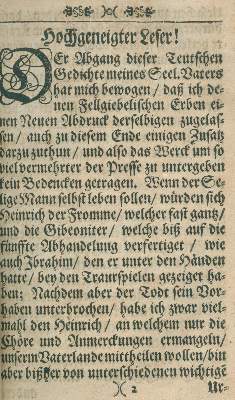 Hochgeneigter Leser!
DEr Abgang dieser Teutschen
Gedichte meines Seel. Vaters
hat mich bewogen / daß ich de-
nen Fellgiebelischen Erben ei-
nen Neuen Abdruck derselbigen zugelas-
sen / auch zu diesem Ende einigen Zusatz
darzu zuthun / und also das Werck um so
viel vermehrter der Presse zu untergeben
kein Bedencken getragen. Wenn der See-
lige Mann selbst leben sollen / würden sich
Heinrich der Fromme / welcher fast gantz /
und die Gibeoniter / welche biß auf die
fünffte Abhandelung verfertiget / wie
auch Ibrahim / den er unter den Händen
hatte / bey den Traurspielen gezeiget ha-
ben: Nachdem aber der Todt sein Vor-
haben unterbrochen / habe ich zwar viel-
mahl den Heinrich / an welchem nur die
Chöre und Anmerckungen ermangeln /
unserm Vaterlande mittheilen wollen / bin
aber bißher von unterschiedenen wichtige
)( 2 Ur-